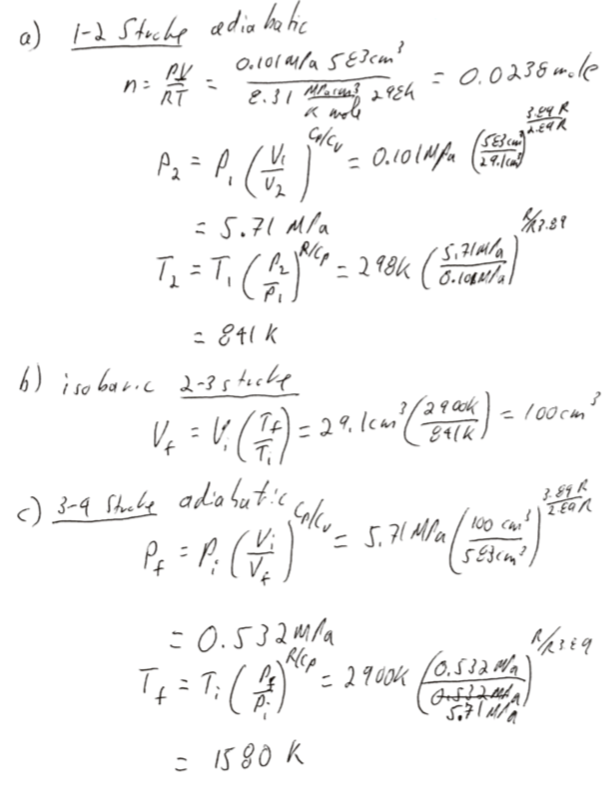 a) 1-2 Stroke adiabatic
n = PV/RT = 0.101 MPa 583 cm³ / 8.31 MPa cm³/K mole 298K = 0.0238 mole
P₂ = P₁ (V₁/V₂)^Cp/Cv = 0.101 MPa (583 cm³/29.1 cm³)^3.89R/2.89R
= 5.71 MPa
T₂ = T₁ (P₂/P₁)^R/Cp = 298K (5.71 MPa/0.101 MPa)^R/R3.89
= 841 K
b) isobaric 2-3 stroke
V_f = V_i (T_f/T_i) = 29.1 cm³ (2900K/841K) = 100 cm³
c) 3-4 Stroke adiabatic
P_f = P_i (V_i/V_f)^Cp/Cv = 5.71 MPa (100 cm³/583 cm³)^3.89R/2.89R
= 0.532 MPa
T_f = T_i (P_f/P_i)^R/Cp = 2900K (0.532 MPa/5.71 MPa)^R/R3.89
= 1580 K